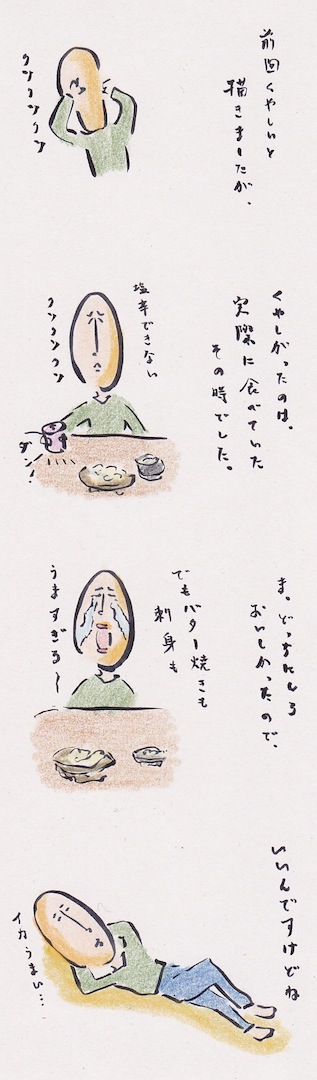 前回くやしいと
描きましたが、
クンクンクン
くやしがったのは。
実際に食べていた
その時でした。
塩辛できない
クンクンクン
ダン!
ま。どっちにしろ
おいしかったので、
でもバター焼きも
刺身も
うますぎる〜
いいんですけどね
イカうまい…